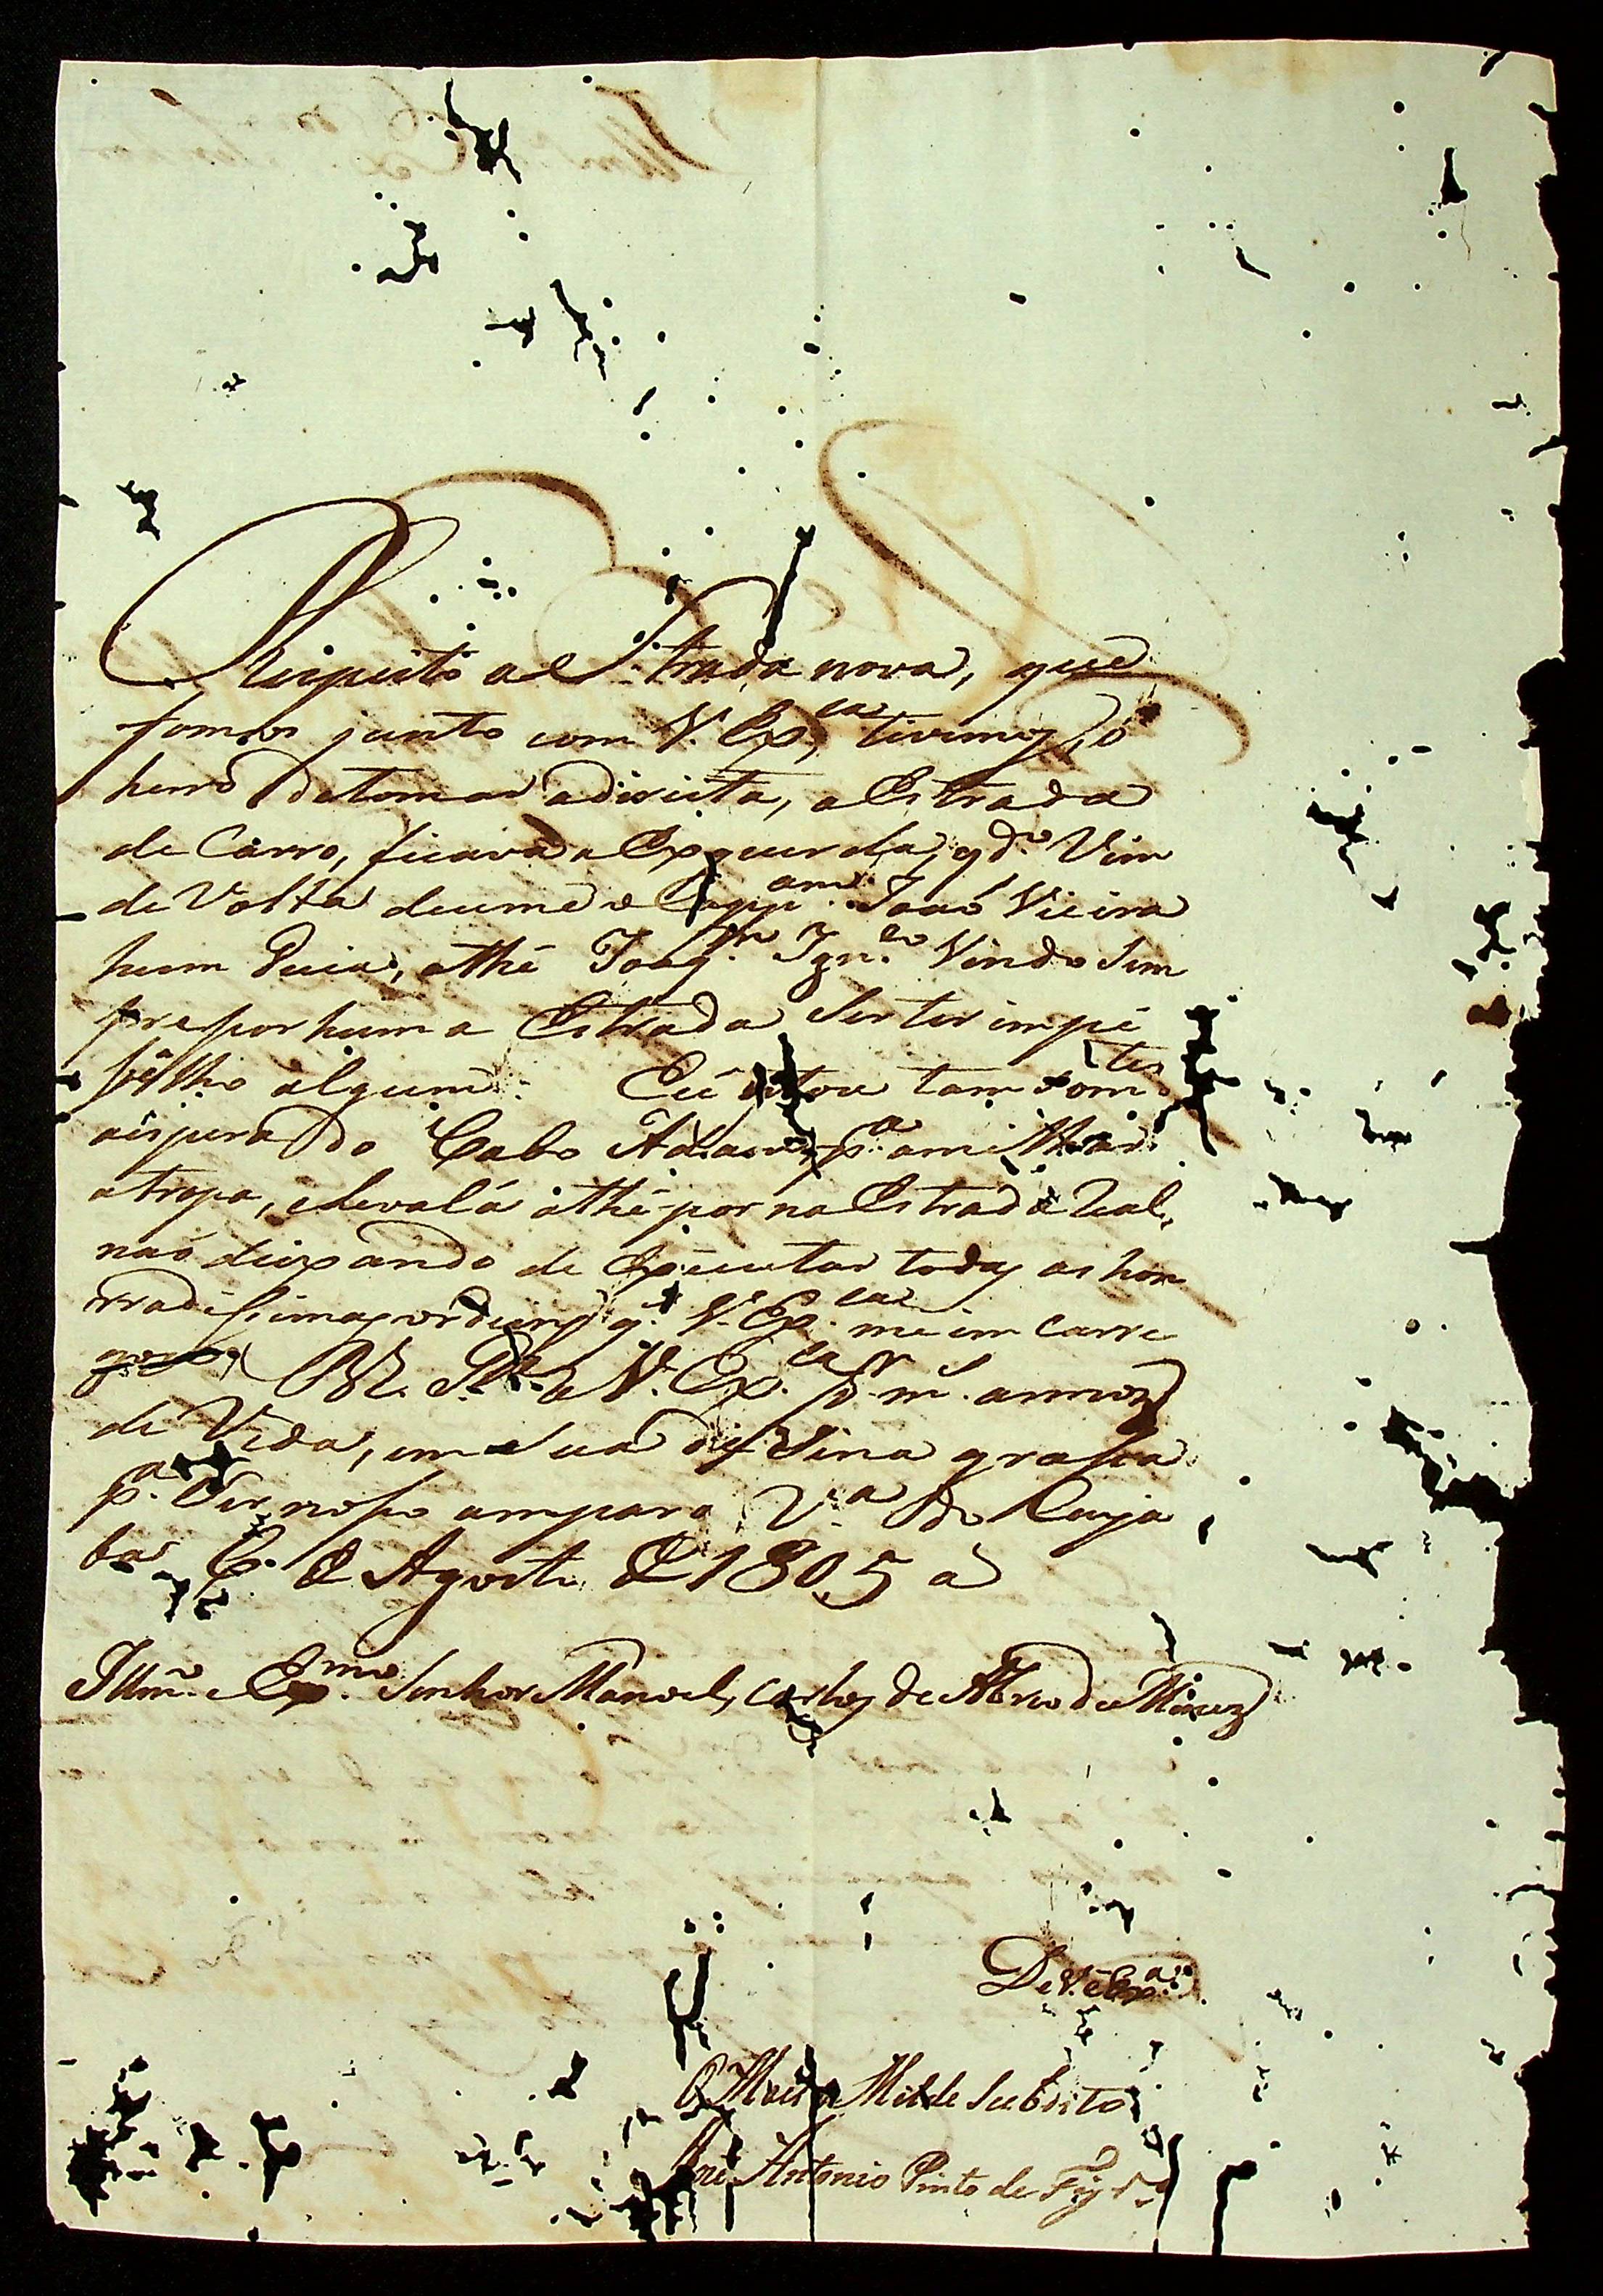 Respeito a Estrada nova, que
fomos junto com V. Ex.ca tivemos o
herro de tomar a direita, a Estrada
de Carro, ficava a Exquerda, q.do Vim
de Volta deume o Cappam. Joaó Vieira
hum Guia, athé Joaq.m Ign.co Vindo Sem
pre por huma Estrada Ser ter impe
silho algum. Eú estou tam som.tes
a espera do Cabo p.a
a tropa, eleva lá athé por na Estrada Real,
naó deixando de Executar todas as hon
rradissimas ordens q.' V. Ex.ca me im carre
gar. D.s a V. Ex.ca p.r m.s annos
de Vida, em Sua Divina grassa
p.a Ser nosso amparo V.a de Curja
ba 6. de Agosto de 1805 a
Illm.o e Exmo. Senhor Manoel, Carlos de Abreo de Menez
De V. Ex.a
O Mais Milde Subdito
José Antonio Pinto de Figr.do